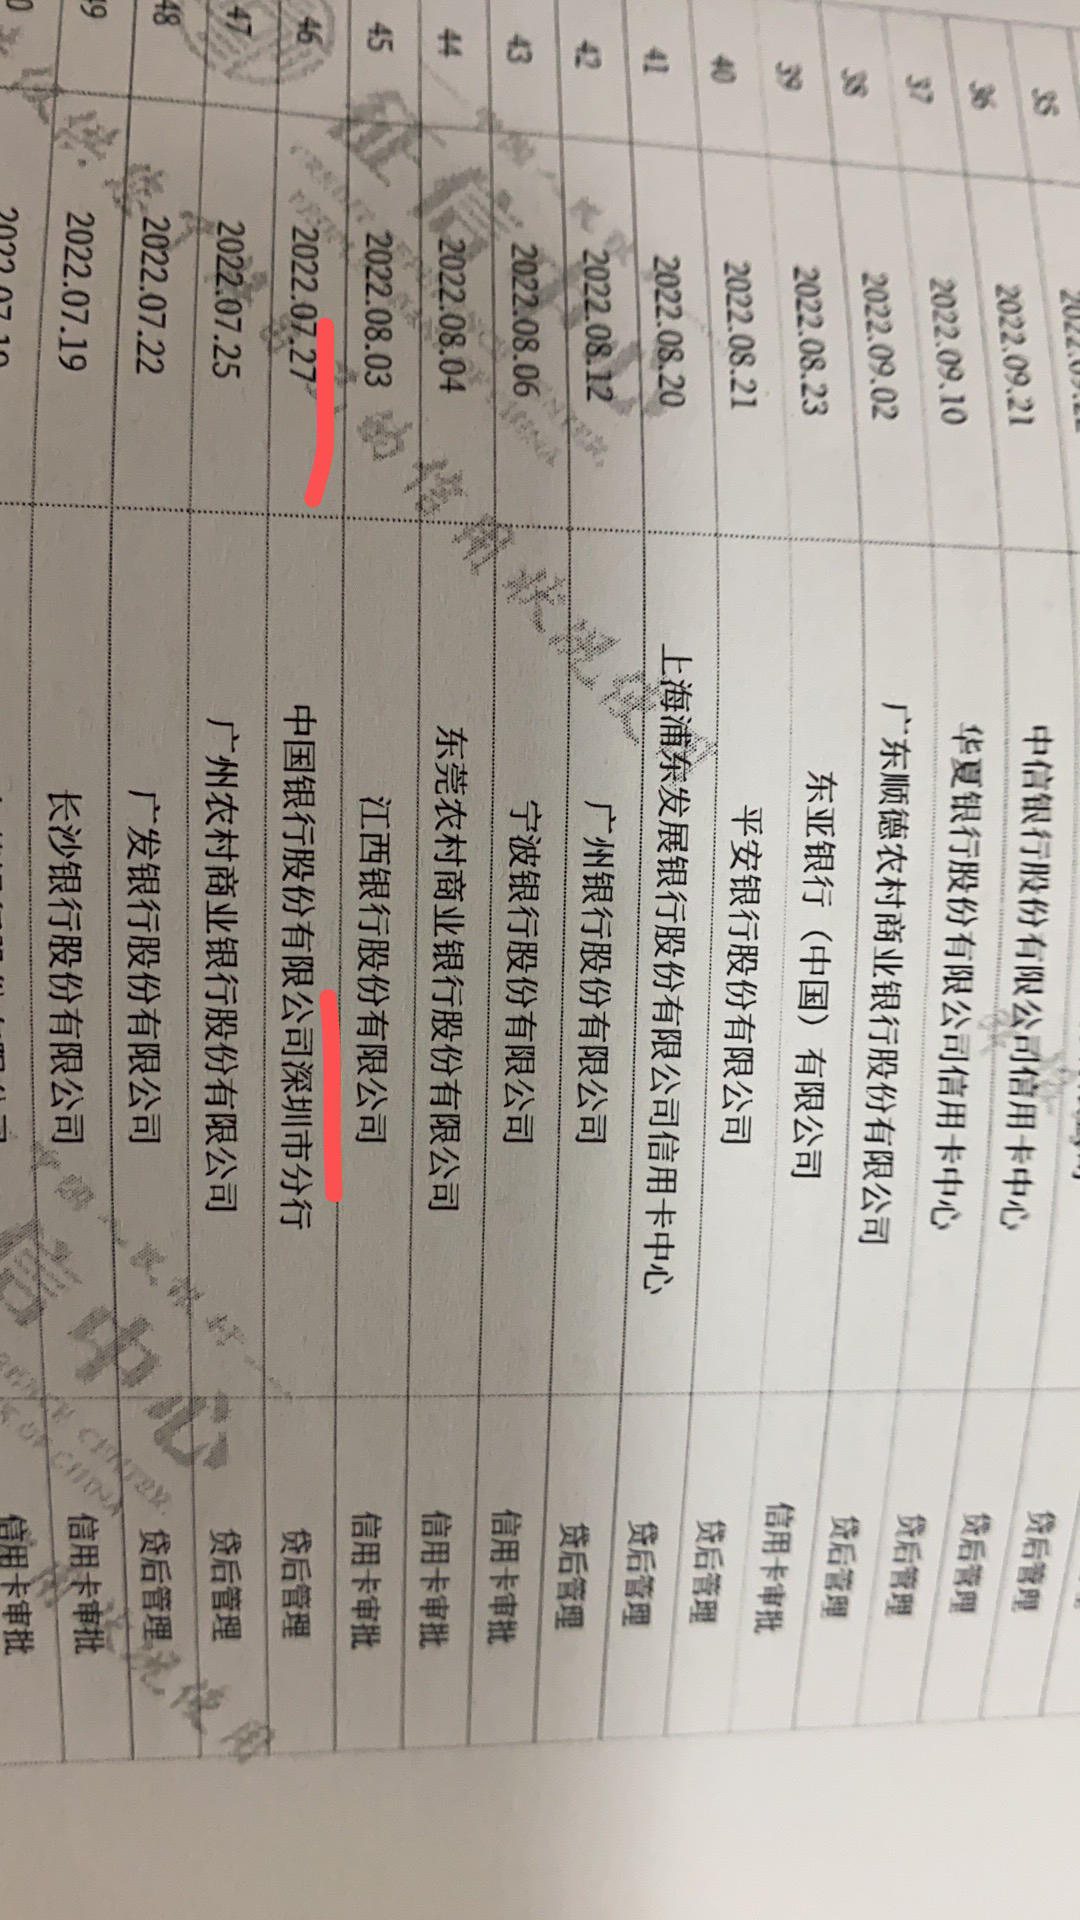 35 2022.09.21 中信银行股份有限公司信用卡中心 贷后管理
36 2022.09.10 华夏银行股份有限公司信用卡中心 贷后管理
37 2022.09.02 广东顺德农村商业银行股份有限公司 贷后管理
38 2022.08.23 东亚银行（中国）有限公司 贷后管理
39 2022.08.21 平安银行股份有限公司 信用卡审批
40 2022.08.20 上海浦东发展银行股份有限公司信用卡中心 贷后管理
41 2022.08.12 广州银行股份有限公司 贷后管理
42 2022.08.06 宁波银行股份有限公司 贷后管理
43 2022.08.04 东莞农村商业银行股份有限公司 信用卡审批
44 2022.08.03 江西银行股份有限公司 信用卡审批
45 2022.07.27 中国银行股份有限公司深圳市分行 信用卡审批
46 2022.07.25 广州农村商业银行股份有限公司 贷后管理
47 2022.07.22 广发银行股份有限公司 贷后管理
48 2022.07.19 长沙银行股份有限公司 贷后管理
信用卡审批
信用卡审批
征信中心
信中心
的信用状况使用
CREDIT
CENTER
CHINA
CENTER
OF CHINA